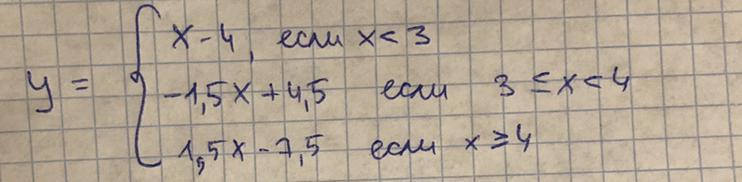 y = { x - 4, если x < 3
-1,5x + 4,5 если 3 ≤ x < 4
1,5x - 7,5 если x ≥ 4